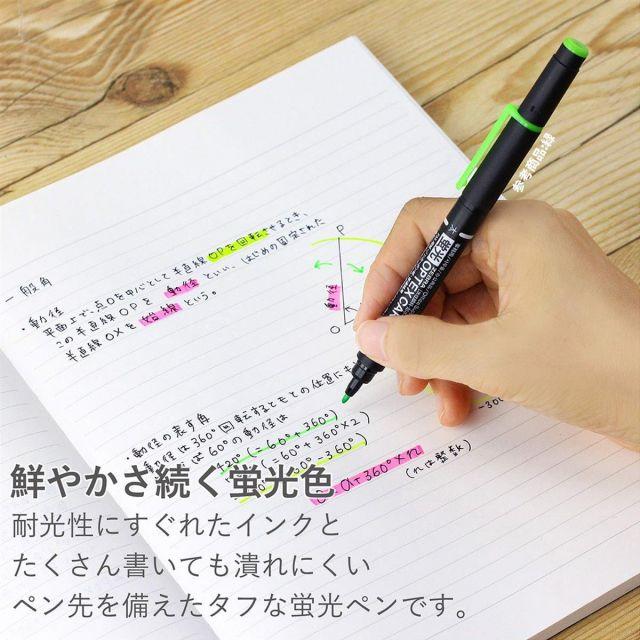 参考商品:緑
太
蛍光 OPTEX CA
一般角
・動径
平面上で、点Oを中心として半直線OPを回転させるとき、
この半直線OPを 動径 といい、はじめの固定された
半直線OXを 始線 という。
P
動径
O
・動径の表す角
動径は360°回転するともとの位置にも
60°の動径は
420° (=60°+360°)
=60°+360°×2)
0°-360°)
= α+360°×n
(nは整数)
-300
鮮やかさ続く蛍光色
耐光性にすぐれたインクと
たくさん書いても潰れにくい
ペン先を備えたタフな蛍光ペンです。